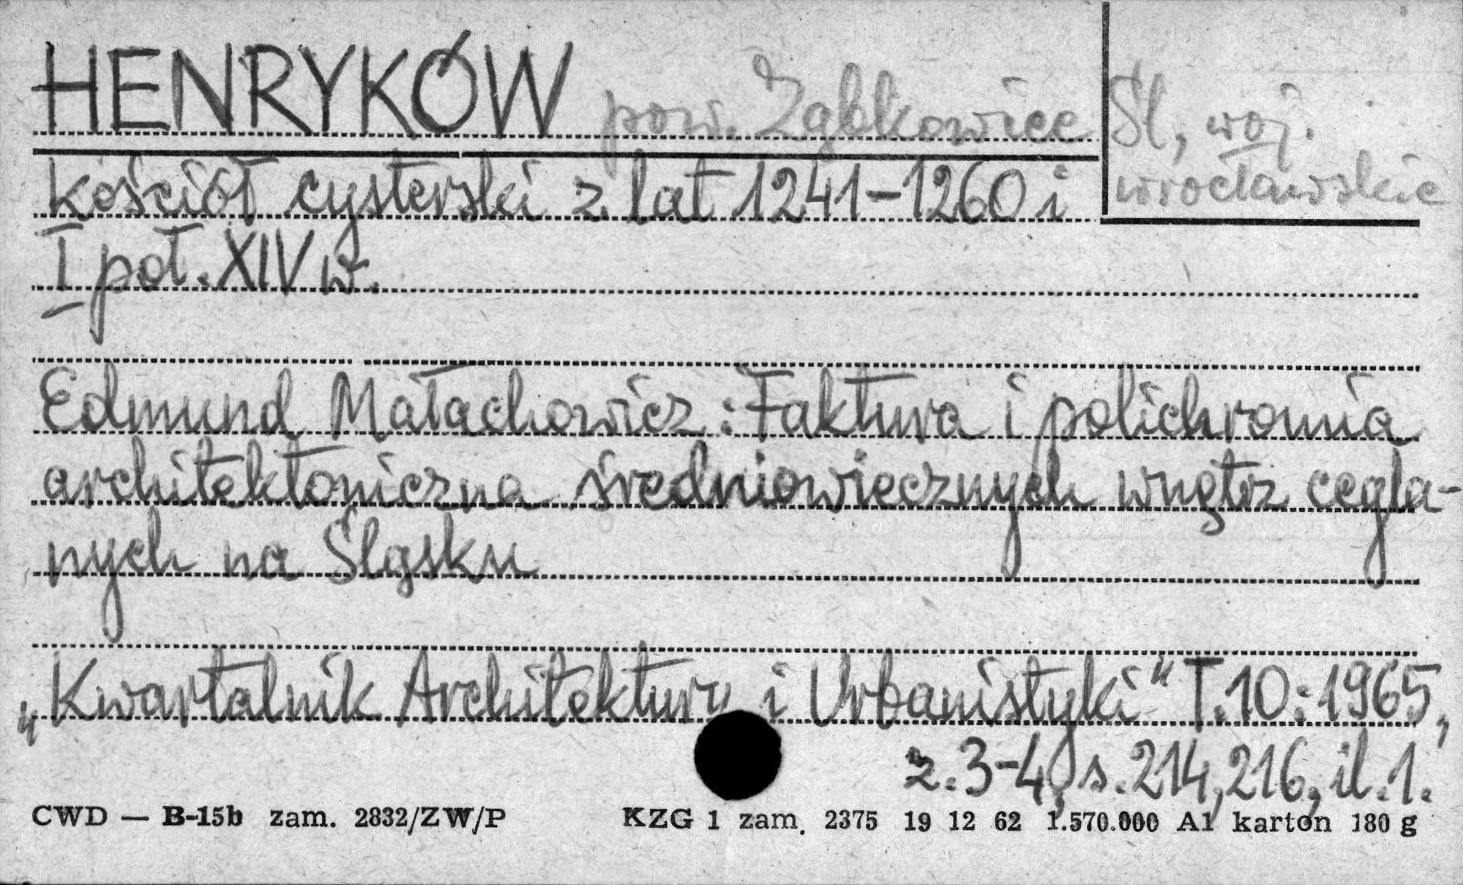 HENRYKÓW pow. Ząbkowice Śl, woj.
wrocławskie
kościół cysterski z lat 1241-1260 i
I poł. XIV w.
Edmund Małachowicz: Faktura i polichromia
architektoniczna średniowiecznych wnętrz cegla-
nych na Śląsku
„Kwartalnik Architektury i Urbanistyki" T.10:1965,
z.3-4, s.214,216, il.1.
CWD — B-15b zam. 2832/ZW/P KZG 1 zam. 2375 19 12 62 1.570.000 A1 karton 180 g